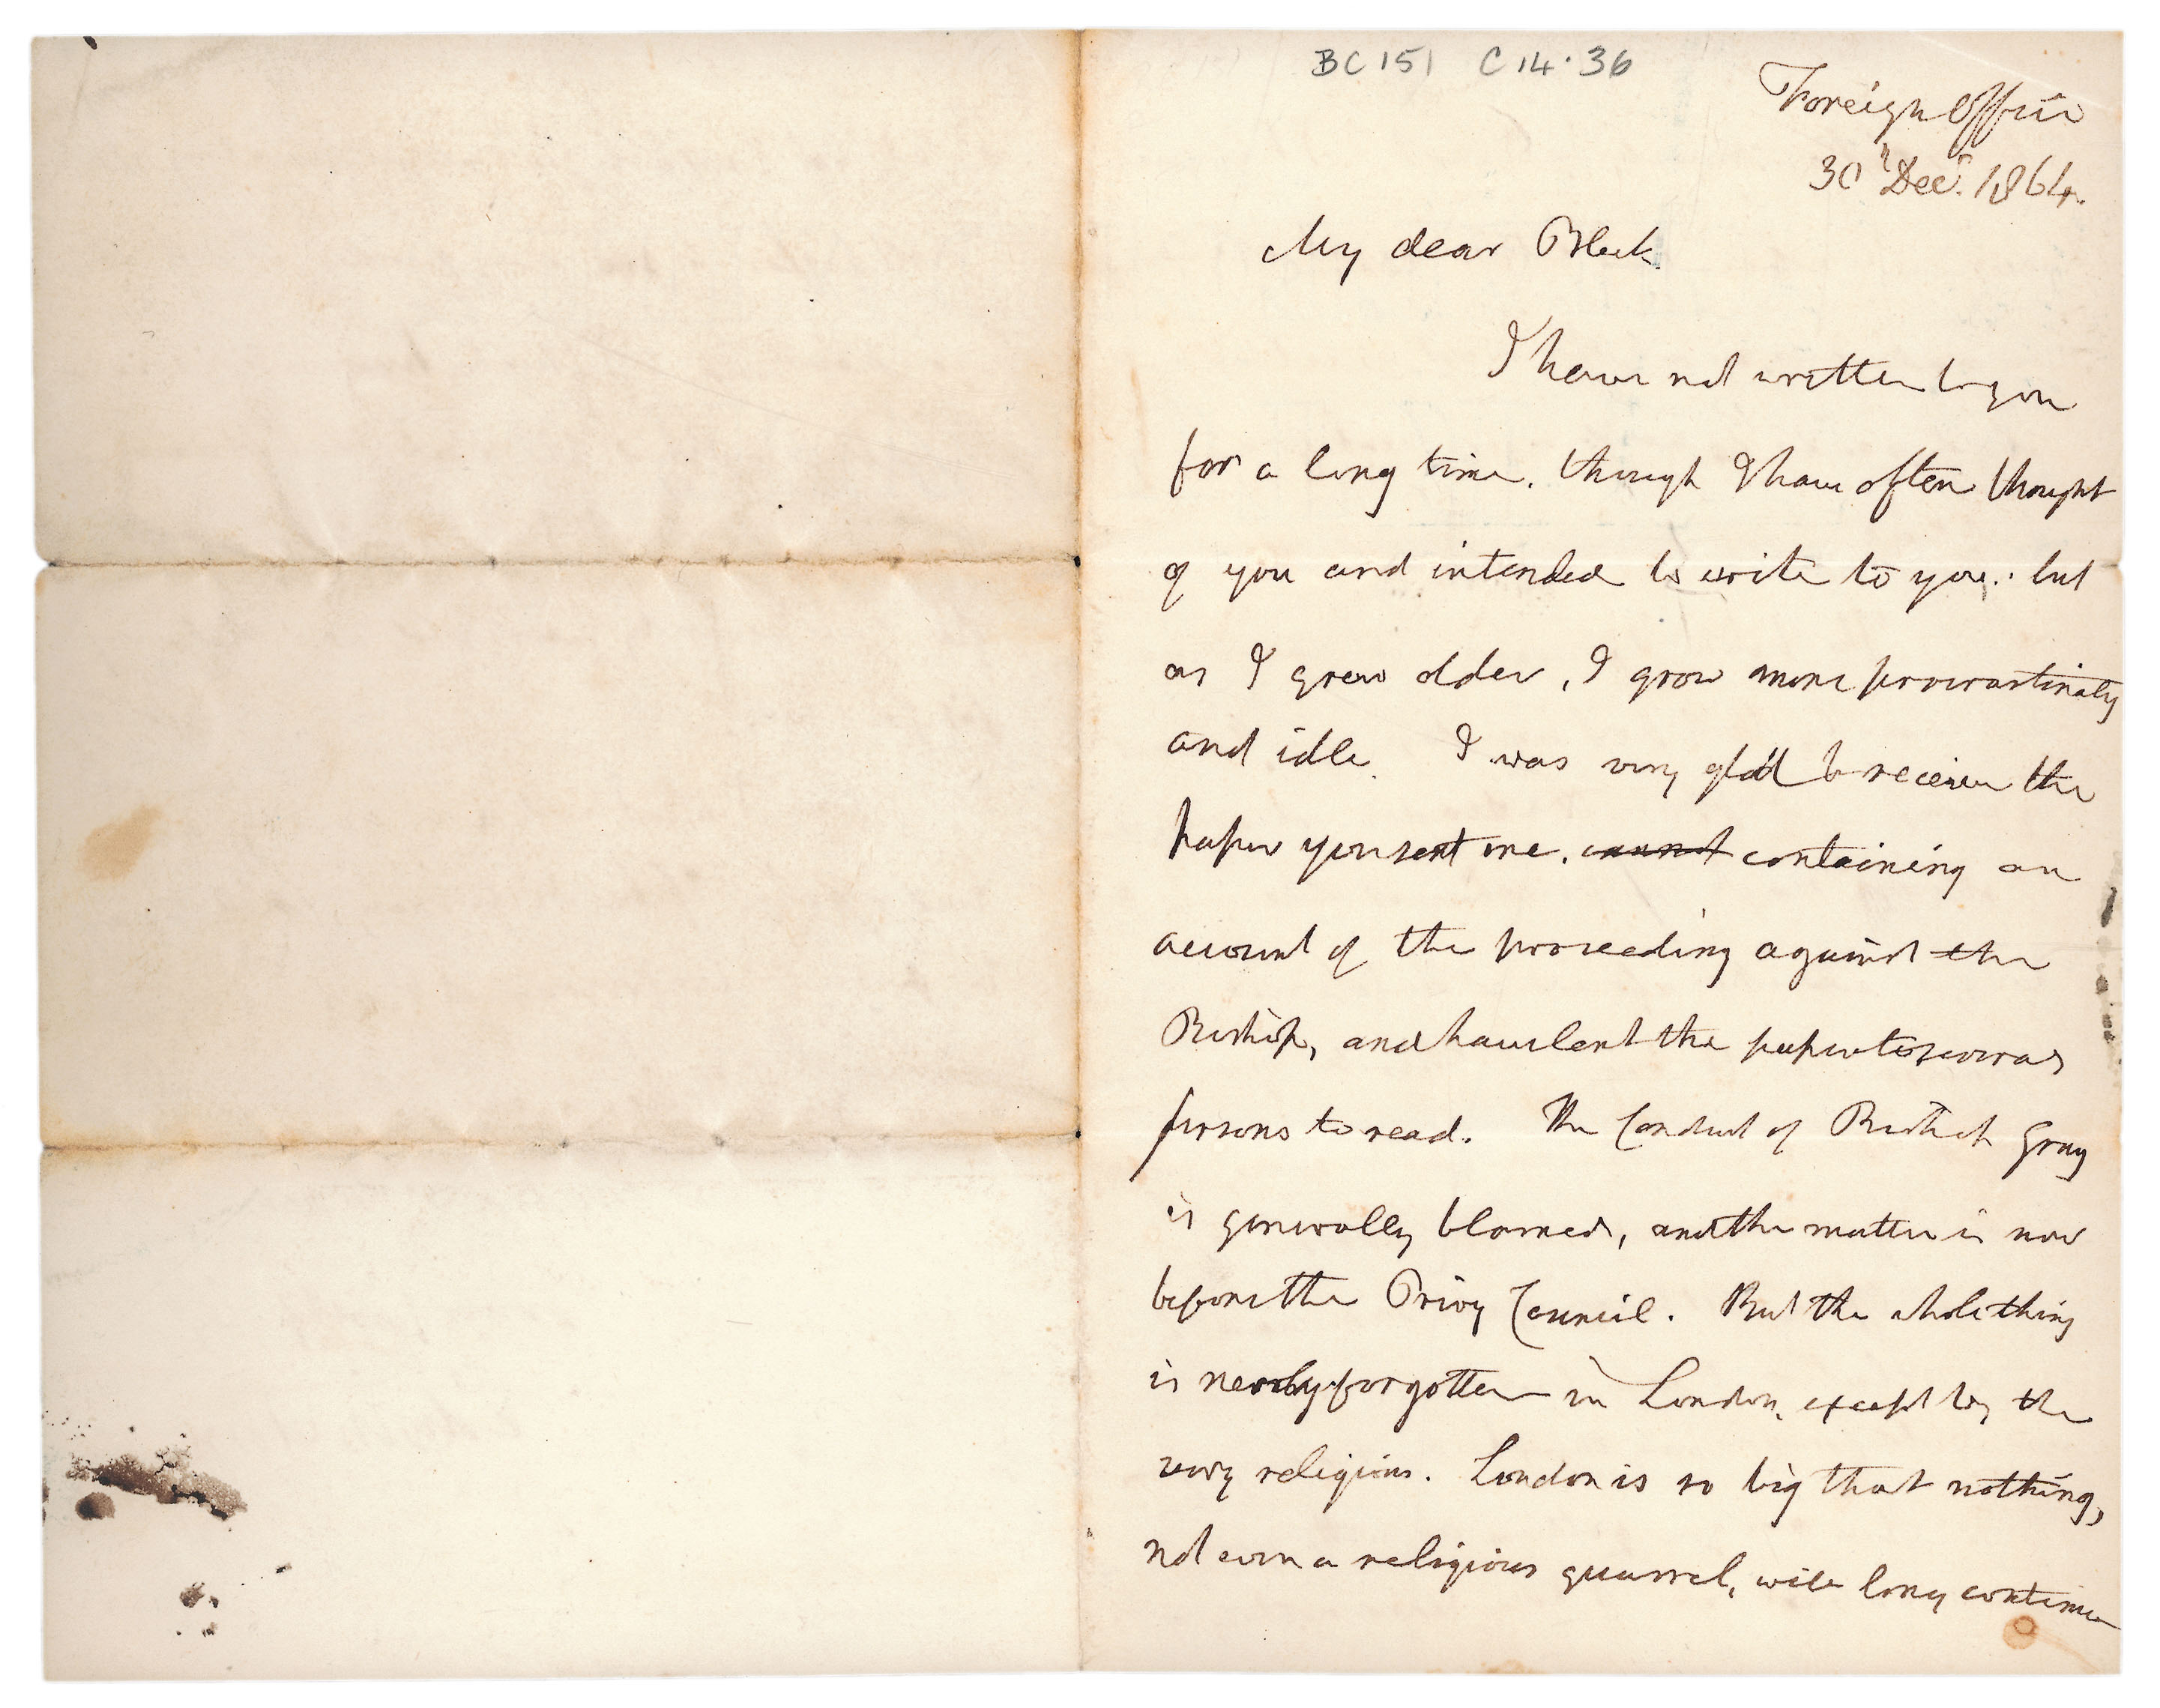 BC 151 C 14.36
Foreign Office
30 Decr. 1864.
My dear Bleek.
I have not written to you
for a long time, though I have often thought
of you and intended to write to you: but
as I grow older, I grow more procrastinating
and idle. I was very glad to receive the
paper you sent me, containing an
account of the proceeding against the
Bishop, and have lent the paper to several
persons to read. The Conduct of Bishop Gray
is generally blamed, and the matter is now
before the Privy Council. But the whole thing
is nearly forgotten in London, except by the
very religious. London is so big that nothing,
not even a religious quarrel, will long continue